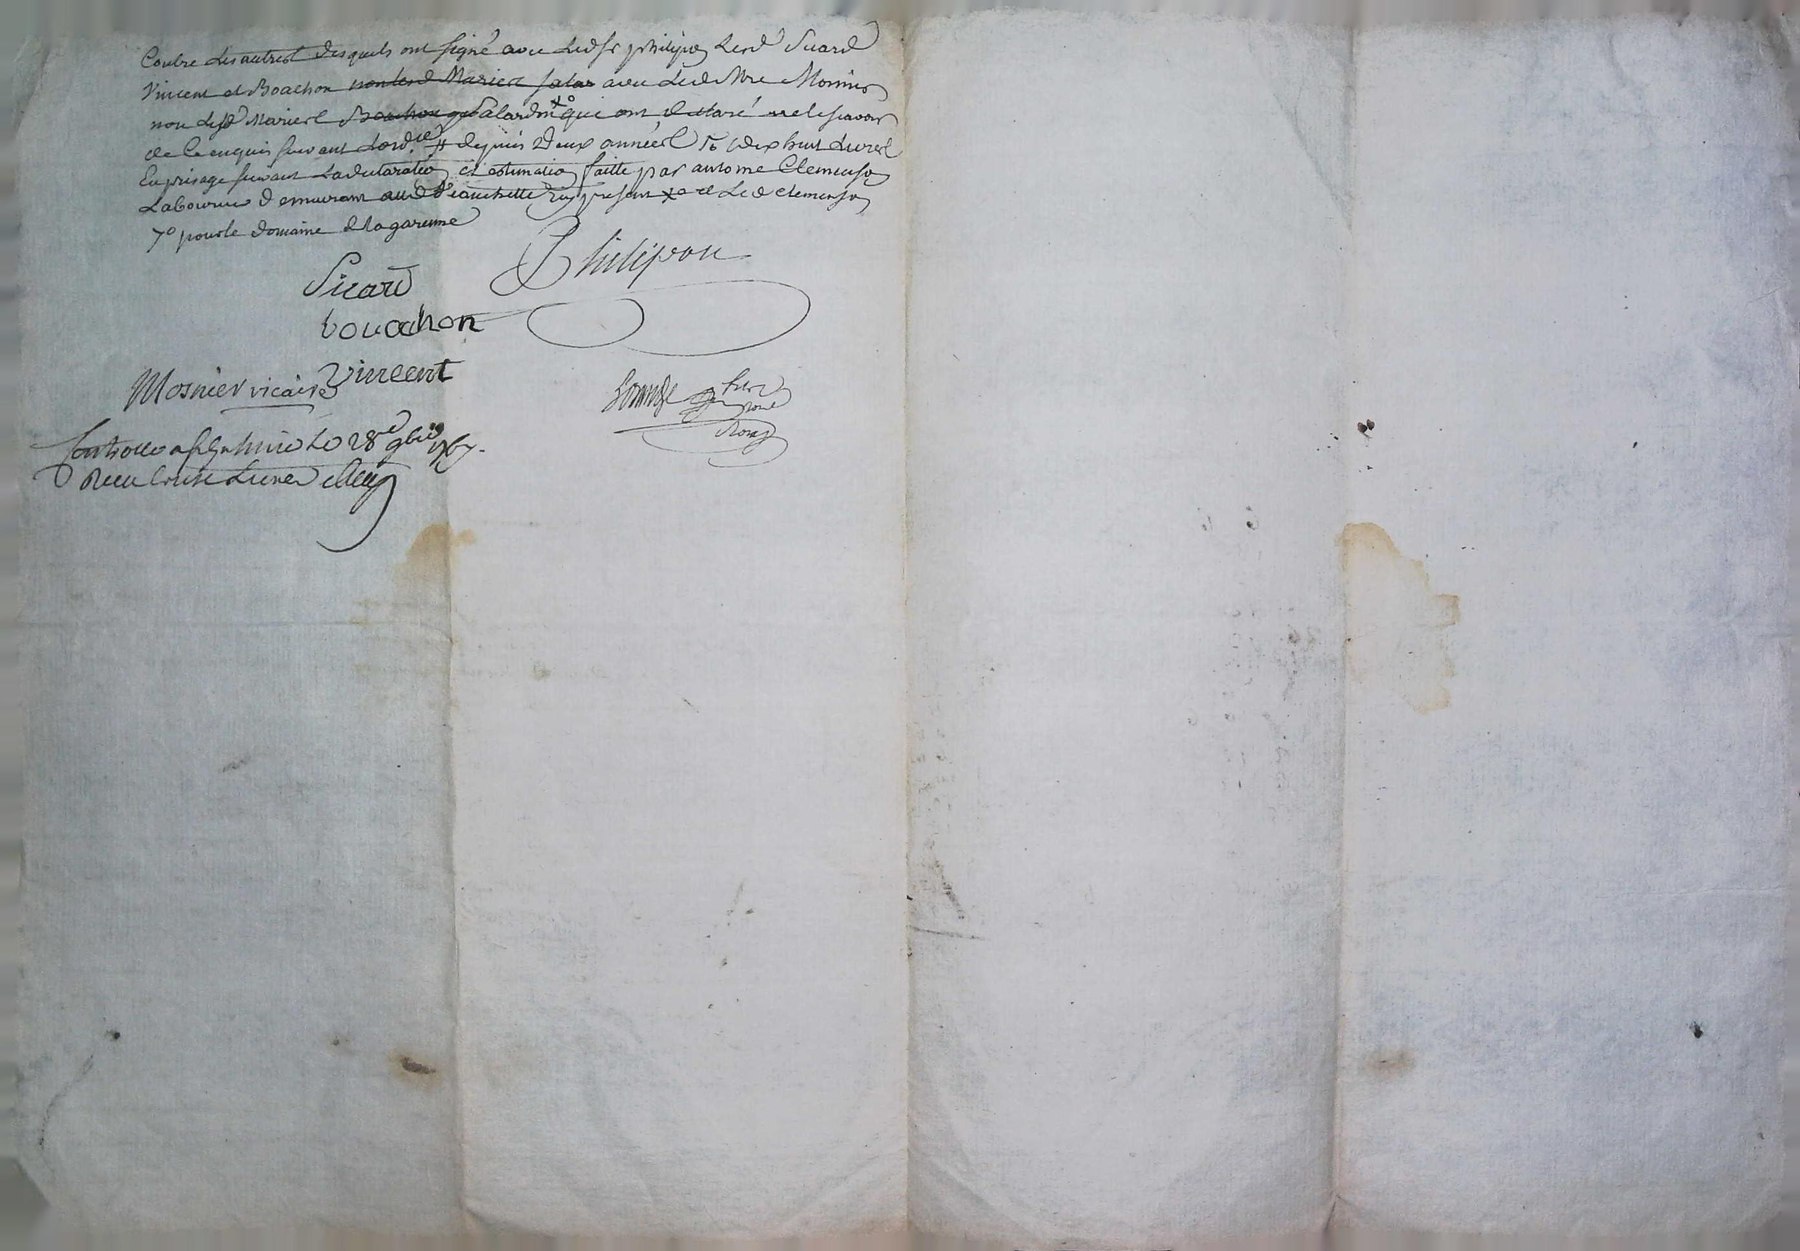 Contre les autres desquels ont signé avec led sr philipon lesd Sicard
Vincent et Boachon nonlesd Marier salar avec led Mre Mosnier
non lesd Marier Boachon Salardon qui ont declaré ne le scavoir
de ce enquis suivant Lord.ce # depuis deux années dix huit Livres
En prisage suivant La declaration et estimation faitte par antoine Clemenson
Laboureur demeurant present x et Led Clemenson
7o pour le domaine
Philipon
Sicard
bouachon
Vincent
Mosnier vicaire
Controllé a Le 28e 9bre 1767.
Receu Livres